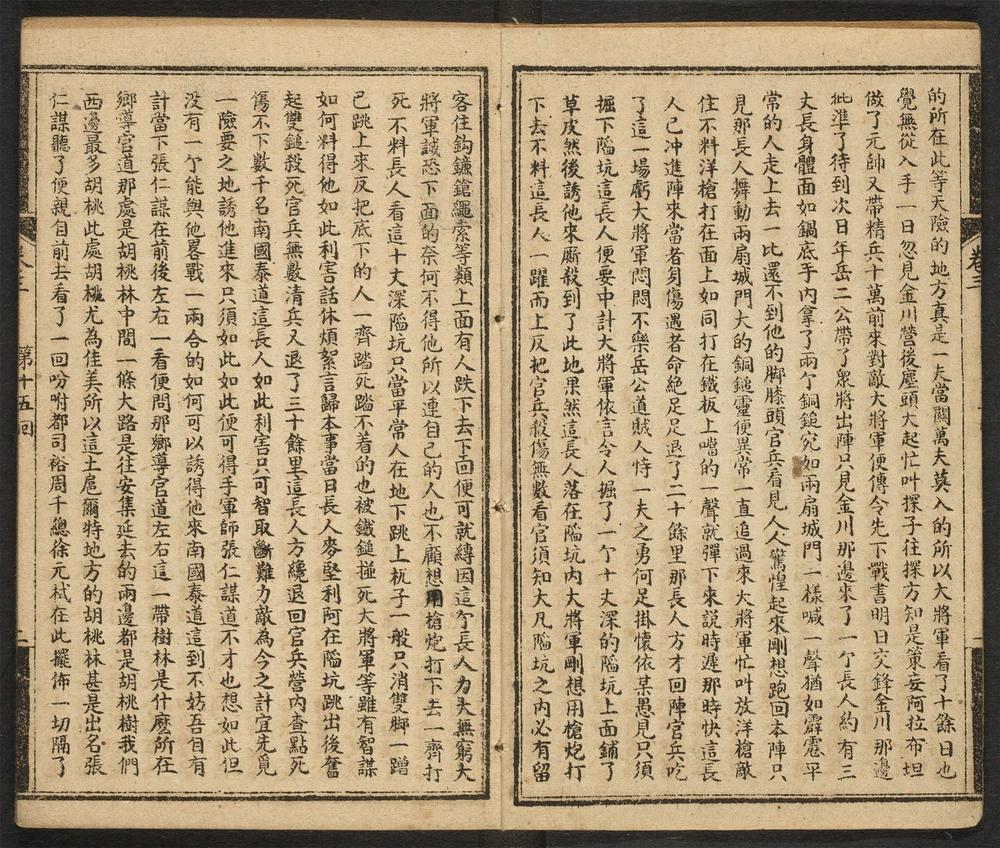 的所在此等天險的地方真是一夫當關萬夫莫入的所以大將軍看了十餘日也
覺無從入手一日忽見金川營後塵頭大起忙叫探子往探方知是策妄阿拉布坦
做了元帥又帶精兵十萬前來對敵大將軍便傳令先下戰書明日交鋒金川那邊
批準了待到次日年岳二公帶了衆將出陣只見金川那邊來了一个長人約有三
丈長身體面如鍋底手內拿了兩个銅鎚宛如兩扇城門一樣喊一聲猶如霹靂平
常的人走上去一比還不到他的脚膝頭官兵看見人人驚惶起來剛想跑回本陣只
見那長人舞動兩扇城門大的銅鎚靈便異常一直追過來大將軍忙叫放洋槍敵
住不料洋槍打在面上如同打在鐵板上噹的一聲就彈下來說時遲那時快這長
人已冲進陣來當者身傷遇者命絶足足退了二十餘里那長人方才回陣官兵吃
了這一場虧大將軍悶悶不樂岳公道賊人恃一夫之勇何足掛懷依某愚見只須
掘下陷坑這長人便要中計大將軍依言令人掘了一个十丈深的陷坑上面鋪了
草皮然後誘他來厮殺到了此地果然這長人落在陷坑內大將軍剛想用槍炮打
下去不料這長人一躍而上反把官兵殺傷無數看官須知大凡陷坑之內必有留
客住鈎鐮鎗繩索等類上面有人跌下去下面便可就縛因這个長人力大無窮大
將軍誠恐下面的奈何不得他所以連自己的人也不顧想用槍炮打下去一齊打
死不料長人看這十丈深陷坑只當平常人在地下跳上杭子一般只消雙脚一蹭
已跳上來反把底下的人一齊踏死踏不着的也被鐵鎚搥死大將軍等雖有智謀
如何料得他如此利害話休煩絮言歸本事當日長人麥堅利阿在陷坑跳出後奮
起雙鎚殺死官兵無數清兵又退了三十餘里這長人方纔退回官兵營內查點死
傷不下數千名南國泰道這長人如此利害只可智取斷難力敵為今之計宜先覓
一險要之地誘他進來只須如此如此便可得手軍師張仁謀道不才也想如此但
没有一个能與他畧戰一兩合的如何可以誘得他來南國泰道這到不妨吾自有
計當下張仁謀在前後左右一看便問那鄉導官道左右這一帶樹林是什麽所在
鄉導官道那處是胡桃林中間一條大路是往安集延去的兩邊都是胡桃樹我們
西邊最多胡桃此處胡桃尤為佳美所以這土扈爾特地方的胡桃林甚是出名張
仁謀聽了便親自前去看了一回吩咐都司裕周千總徐元栻在此擺佈一切隔了
卷三
一
卷三
第十五回
二